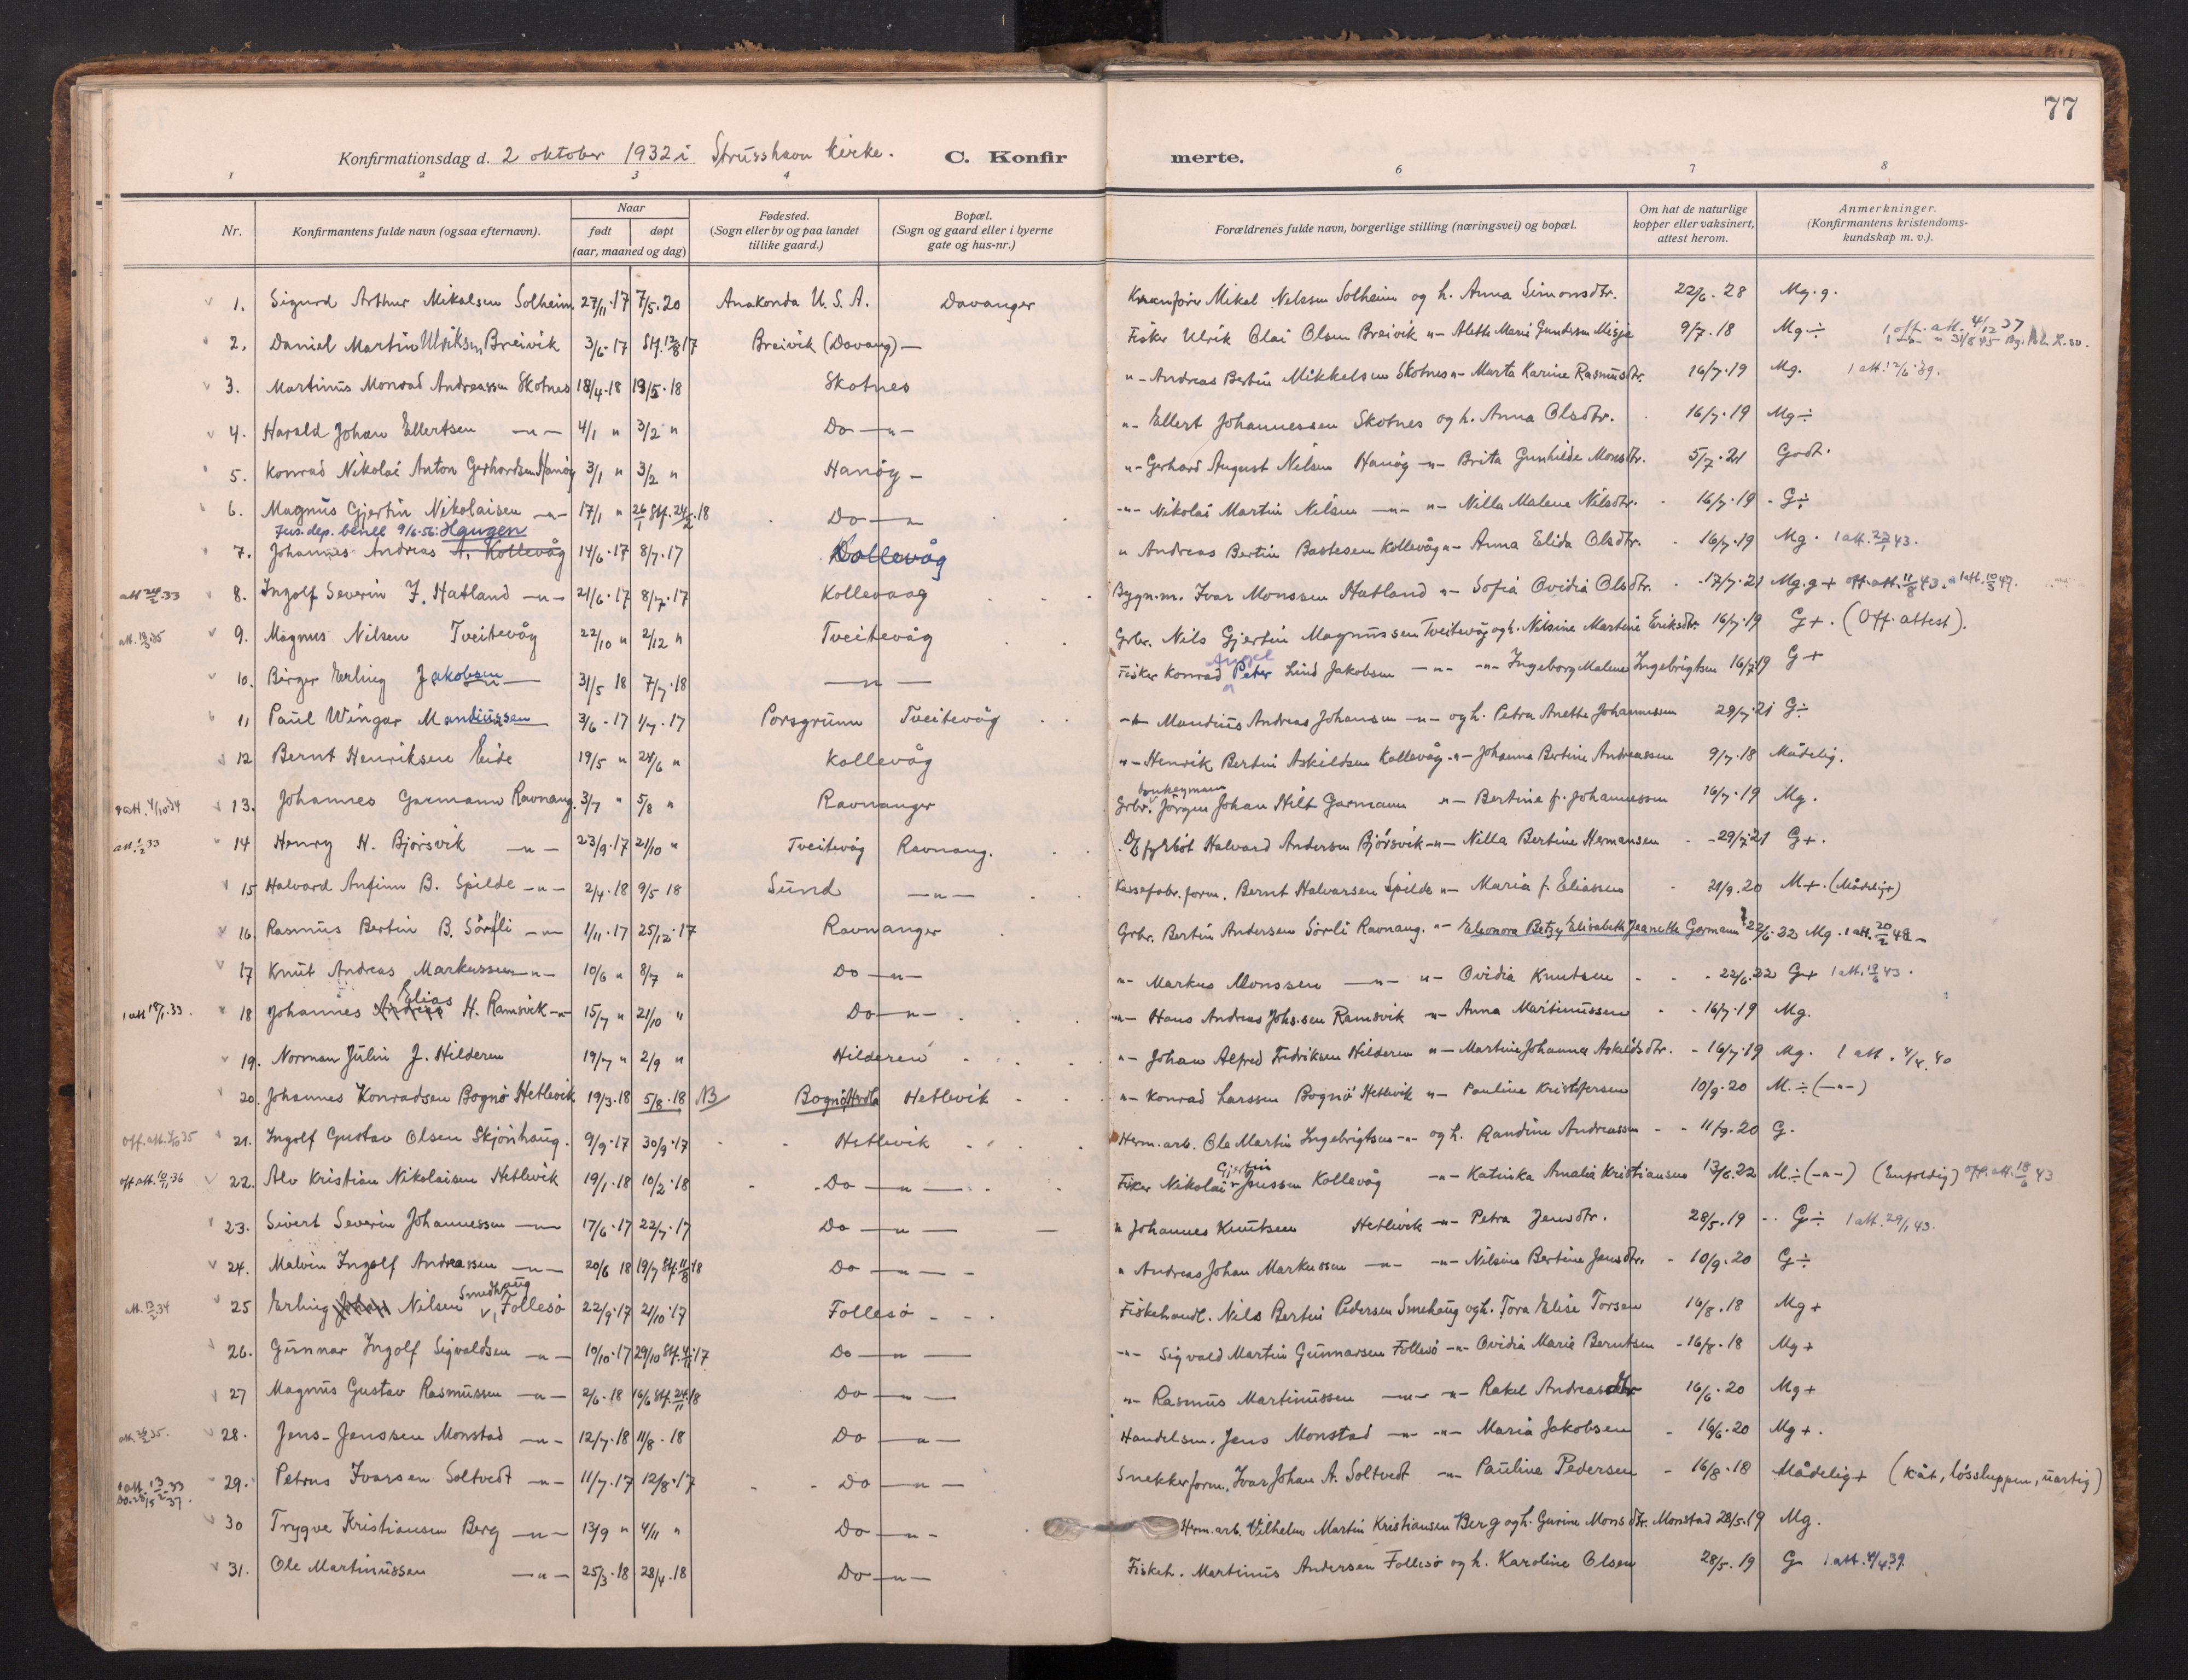 77
Konfirmationsdag d. 2 oktober 1932 i Strusshavn kirke. C. Konfirmerte.
1 2 3 4 6 7 8
Nr. Konfirmantens fulde navn (ogsaa efternavn). Naar født døpt (aar, maaned og dag) Fødested. (Sogn eller by og paa landet tillike gaard.) Bopæl. (Sogn og gaard eller i byerne gate og hus-nr.) Forældrenes fulde navn, borgerlige stilling (næringsvei) og bopæl. Om hat de naturlige kopper eller vaksinert, attest herom. Anmerkninger. (Konfirmantens kristendoms-kundskap m. v.).
1. Sigurd Arthur Mikalsen Solheim 27/11·17 7/5·20 Anakonda U.S.A. Davanger Mikal Nelssen Solheim og h. Anna Simonsdtr. 22/6·28 Mg.g.
2. Daniel Martin Ulriksen Breivik 3/6·17 Stf. 12/8 17 Breivik (Davang) — Fisker Ulrik Olai Olsen Breivik "— Alette Marie Gundersen Misje 9/7·18 Mg ÷ 1 off. att. 4/12 37
3. Martinus Monrad Andreassen Skotnes 18/4·18 19/5·18 Skotnes "— Andreas Bertin Mikkelsen Skotnes "— Marta Karine Rasmusdtr. 16/7·19 Mg. 1 att. 12/6·39.
4. Harald Johan Ellertsen —"— 4/1 " 3/2 " Do —"— "— Ellert Johannessen Skotnes og h. Anna Olsdtr. 16/7·19 Mg ÷
5. Konrad Nikolai Anton Gerhardsen Hanøy 3/1 " 3/2 " Hanöy — "— Gerhard August Nilsen Hanöy —"— Brita Gunhilde Monsdtr. 5/7·21 Godt.
6. Magnus Gjertin Nikolaisen —"— 17/1 " 26/1 Stf. 24/2·18 Do —"— —"— Nikolai Martin Nilsen —"— "— Nilla Malene Nilsdtr. 16/7·19 G ÷
Jus. dep. bevill 9/6·56: Haugen
7. Johannes Andreas A. Kollevåg 14/6·17 8/7·17 Kollevåg " Andreas Bertin Bastesen Kollevåg "— Anna Elida Olsdtr. 16/7·19 Mg. 1 att. 22/1 43.
8. Ingolf Severin I. Hatland —"— 21/6·17 8/7·17 Kollevaag Bygn.m. Ivar Monssen Hatland "— Sofia Ovidia Olsdtr. 17/7·21 Mg.g + off. att. 11/8 43. 1 att. 10/3 47.
att. 19/3 35 9. Magnus Nilsen Tveitevåg 22/10 " 2/12 " Tveitevåg Grbr. Nils Gjertin Magnussen Tveitevåg og h. Nilsine Martine Eriksdtr. 16/7·19 G+. (Off. attest).
10. Birger Erling Jakobsen —"— 31/5 18 7/7·18 —"— Fisker Konrad Peter Lind Jakobsen —"— —"— Ingeborg Malene Ingebrigtsen 16/7 19 G+
11 Paul Wingar Mandiussen 3/6·17 1/7·17 Porsgrunn Tveitevåg —"— Mandius Andreas Johansen —"— og h. Petra Anette Johannessen 29/7·21 G ÷
12 Bernt Henriksen Eide 19/5 " 24/6 " Kollevåg "— Henrik Bertin Askildsen Kollevåg "— Johanna Bertine Andreassen 9/7·18 Mådelig.
13. Johannes Garmann Ravnang. 3/7 " 5/8 " Ravnanger Grbr. donkeymann Jörgen Johan Hilt Garmann "— Bertine f. Johannessen 16/7·19 Mg.
att. 1/2 33 14 Henry H. Bjørsvik —"— 23/9·17 21/10 " Tveitevåg Ravnang. fyrböt Halvard Andersen Bjørsvik —"— Nilla Bertine Hermansen 29/7·21 G+.
15 Halvard Anfinn B. Spilde —"— 2/4·18 9/5 18 Sund —"— Kassefabr. form. Bernt Halvarsen Spilde "— Maria f. Eliassen 21/9·20 M+. (Mådelig+)
16. Rasmus Bertin B. Sörli —"— 1/11·17 25/12·17 Ravnanger Grbr. Bertin Andersen Sörli Ravnang. "— Eleonora Betzy Elisabeth Jeanette Garmann 22/6·22 Mg. 1 att. 20/2 48
17 Knut Andreas Markussen —"— 10/6 " 8/7 " Do —"— "— Markus Monssen —"— "— Ovidia Knutsen 22/6·22 G+ 1 att. 19/8 43.
1 att 18/1·33. 18 Johannes Andreas Elias H. Ramsvik —"— 15/7 " 21/10 " Do —"— "— Hans Andreas Johs.sen Ramsvik "— Anna Martinussen 16/7·19 Mg.
19. Norman Julin J. Hilderen 19/7 " 2/9 " Hilderen "— Johan Alfred Fredriksen Hilderen "— Martine Johanna Askildsdtr. 16/7·19 Mg. 1 att. 4/4·40
20. Johannes Konradsen Bognø Hetlevik 19/3·18 5/8·18 NB Bognø Herdla Hetlevik "— Konrad Larssen Bognø Hetlevik "— Pauline Kristofersen 10/9·20 M. ÷ (—"—)
21. Ingolf Gustav Olsen Skjönhaug. 9/9·17 30/9·17 Hetlevik Herm. arb. Ole Martin Ingebrigtsen —"— og h. Randine Andreassen 11/9·20 G.
off. att. 10/11·36 22. Alv Kristian Nikolaisen Hetlevik 19/1·18 10/2·18 Do —"— Fisker Nikolai Gjertin Jenssen Kollevåg —"— Katinka Amalia Kristiansen 13/6·22 M. ÷ (—"—) (Enfoldig) off. att. 18/6 43
23. Sivert Severin Johannessen —"— 17/6·17 22/7·17 Do —"— " Johannes Knutsen Hetlevik —"— Petra Jensdtr. 28/5·19 G ÷ 1 att. 29/1 43.
24. Malvin Ingolf Andreassen —"— 20/6 18 19/7 Stf. 11/8 18 Do —"— " Andreas Johan Markussen —"— —"— Nilsine Bertine Jensdtr. 10/9·20 G ÷
25 Erling Johan Nilsen Smedhaug, Follesö 22/9·17 21/10·17 Follesö Fiskehandl. Nils Bertin Pedersen Smehaug og h. Tora Elise Torsen 16/8·18 Mg+
26. Gunnar Ingolf Sigvaldsen —"— 10/10·17 29/10 Stf. 4/11·17 Do —"— —"— Sigvald Martin Gunnarsen Follesö —"— Ovidia Marie Berntsen 16/8·18 Mg+
27 Magnus Gustav Rasmussen —"— 2/6·18 16/6 Stf. 24/11·18 Do —"— "— Rasmus Martinussen —"— "— Rakel Andreasdtr 16/6·20 Mg+
28. Jens Jenssen Monstad —"— 12/7·18 11/8·18 Do —"— Handelsm. Jens Monstad —"— —"— Maria Jakobsen 16/6·20 Mg+.
29. Petrus Ivarsen Soltvedt —"— 11/7·17 12/8·17 Do —"— Snekkerform. Ivar Johan A. Soltvedt —"— Pauline Pedersen 16/8·18 Mådelig+ (kåt, lössluppen, uartig)
30 Trygve Kristiansen Berg —"— 13/9 " 4/11 " Do —"— Herm. arb. Vilhelm Martin Kristiansen Berg og h. Gurine Monsdtr. Monstad 28/5·19 Mg.
31. Ole Martinussen —"— 25/3·18 28/4·18 Do —"— Fiskeh. Martinus Andersen Follesö og h. Karoline Olsen 28/5·19 G 1 att. 4/4 39.